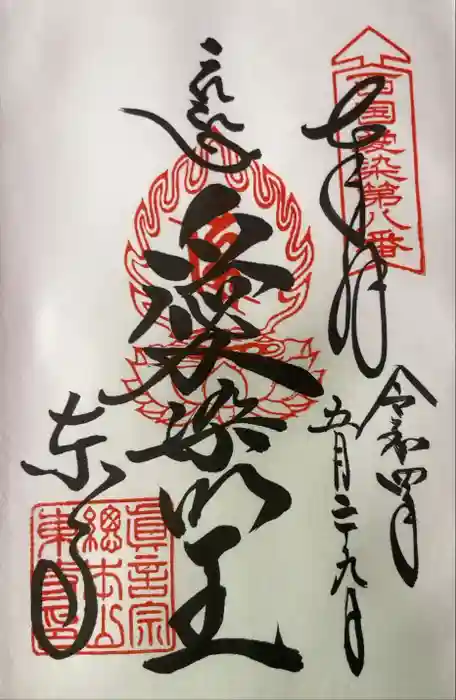 奉拝
西国愛染第八番
令和四年
五月二十九日
愛染明王
東寺
真言宗
總本山
東寺印